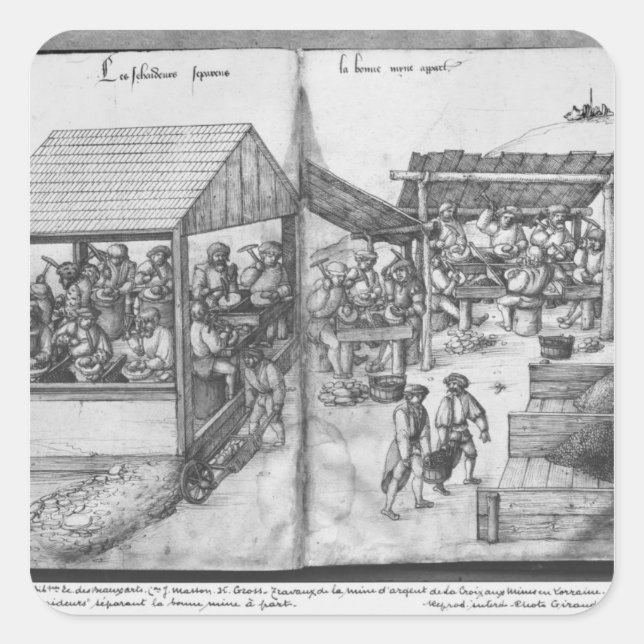 Les schaideurs separens la bonne myne appart.
Bibᵗʰᵉ Ec. des Beaux arts. Cᵒⁿ J. Masson. H. Gross. Travaux de la mine d'argent de La Croix aux Mines en Lorraine.
aideurs" séparant la bonne mine à part. Reprod. interd. Photo Giraud